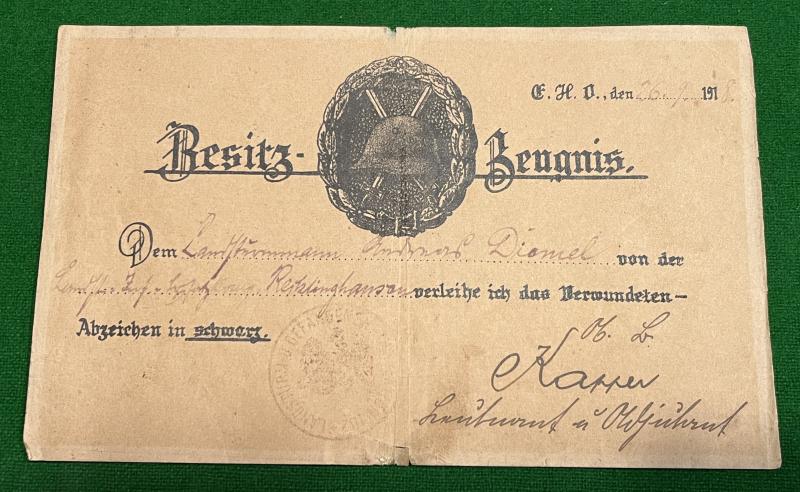 E. H. O., den 26. 1918.
Besitz-Zeugnis.
Dem Landsturmmann Andreas Diomel von der
Recklinghausen verleihe ich das Verwundeten-
Abzeichen in schwarz.
Kapper
Leutnant u Adjutant